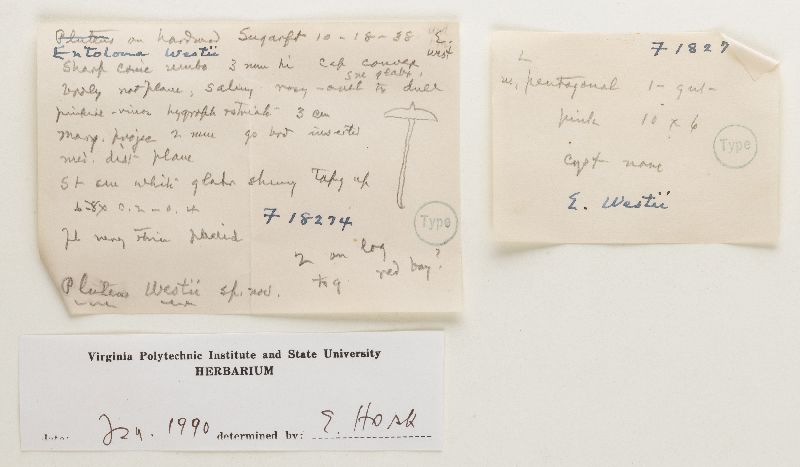 Pluteus on hardwood Sugarft 10-18-38 E. West
Entoloma Westii
Sharp conic umbo 3 mm hi cap convex
Sm glabr.
broly not plane, saliny rosy - to dull
pinkish - hygroph striat 3 cm
marg. projec 2 mm go brd inserted
med. dist plane
St sm white glabr shiny Tapg up
6-8 x 0.2-0.4
F 18274
Type
fl very thin
2 on log
red bay?
tog
Pluteus Westii sp. nov.
F 1827
pentagonal 1-gut-
pink 10 x 6
Type
cyst none
E. Westii
Virginia Polytechnic Institute and State University
HERBARIUM
Date: Jan. 1990 determined by: E. Horak